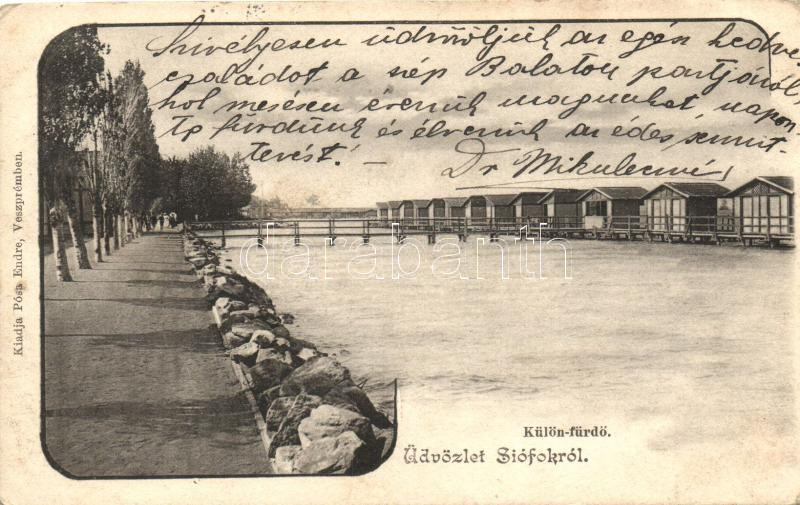 Szivélyesen üdvözöljük az egész kedves
családot a szép Balaton partjáról
hol mesésen érezzük magunkat napon
ta fürdünk és élvezzük az édes semmit-
tevést! —
Dr Mikuleczné
Kiadja Pósa Endre, Veszprémben.
darabanth
Külön-fürdő.
Üdvözlet Siófokról.